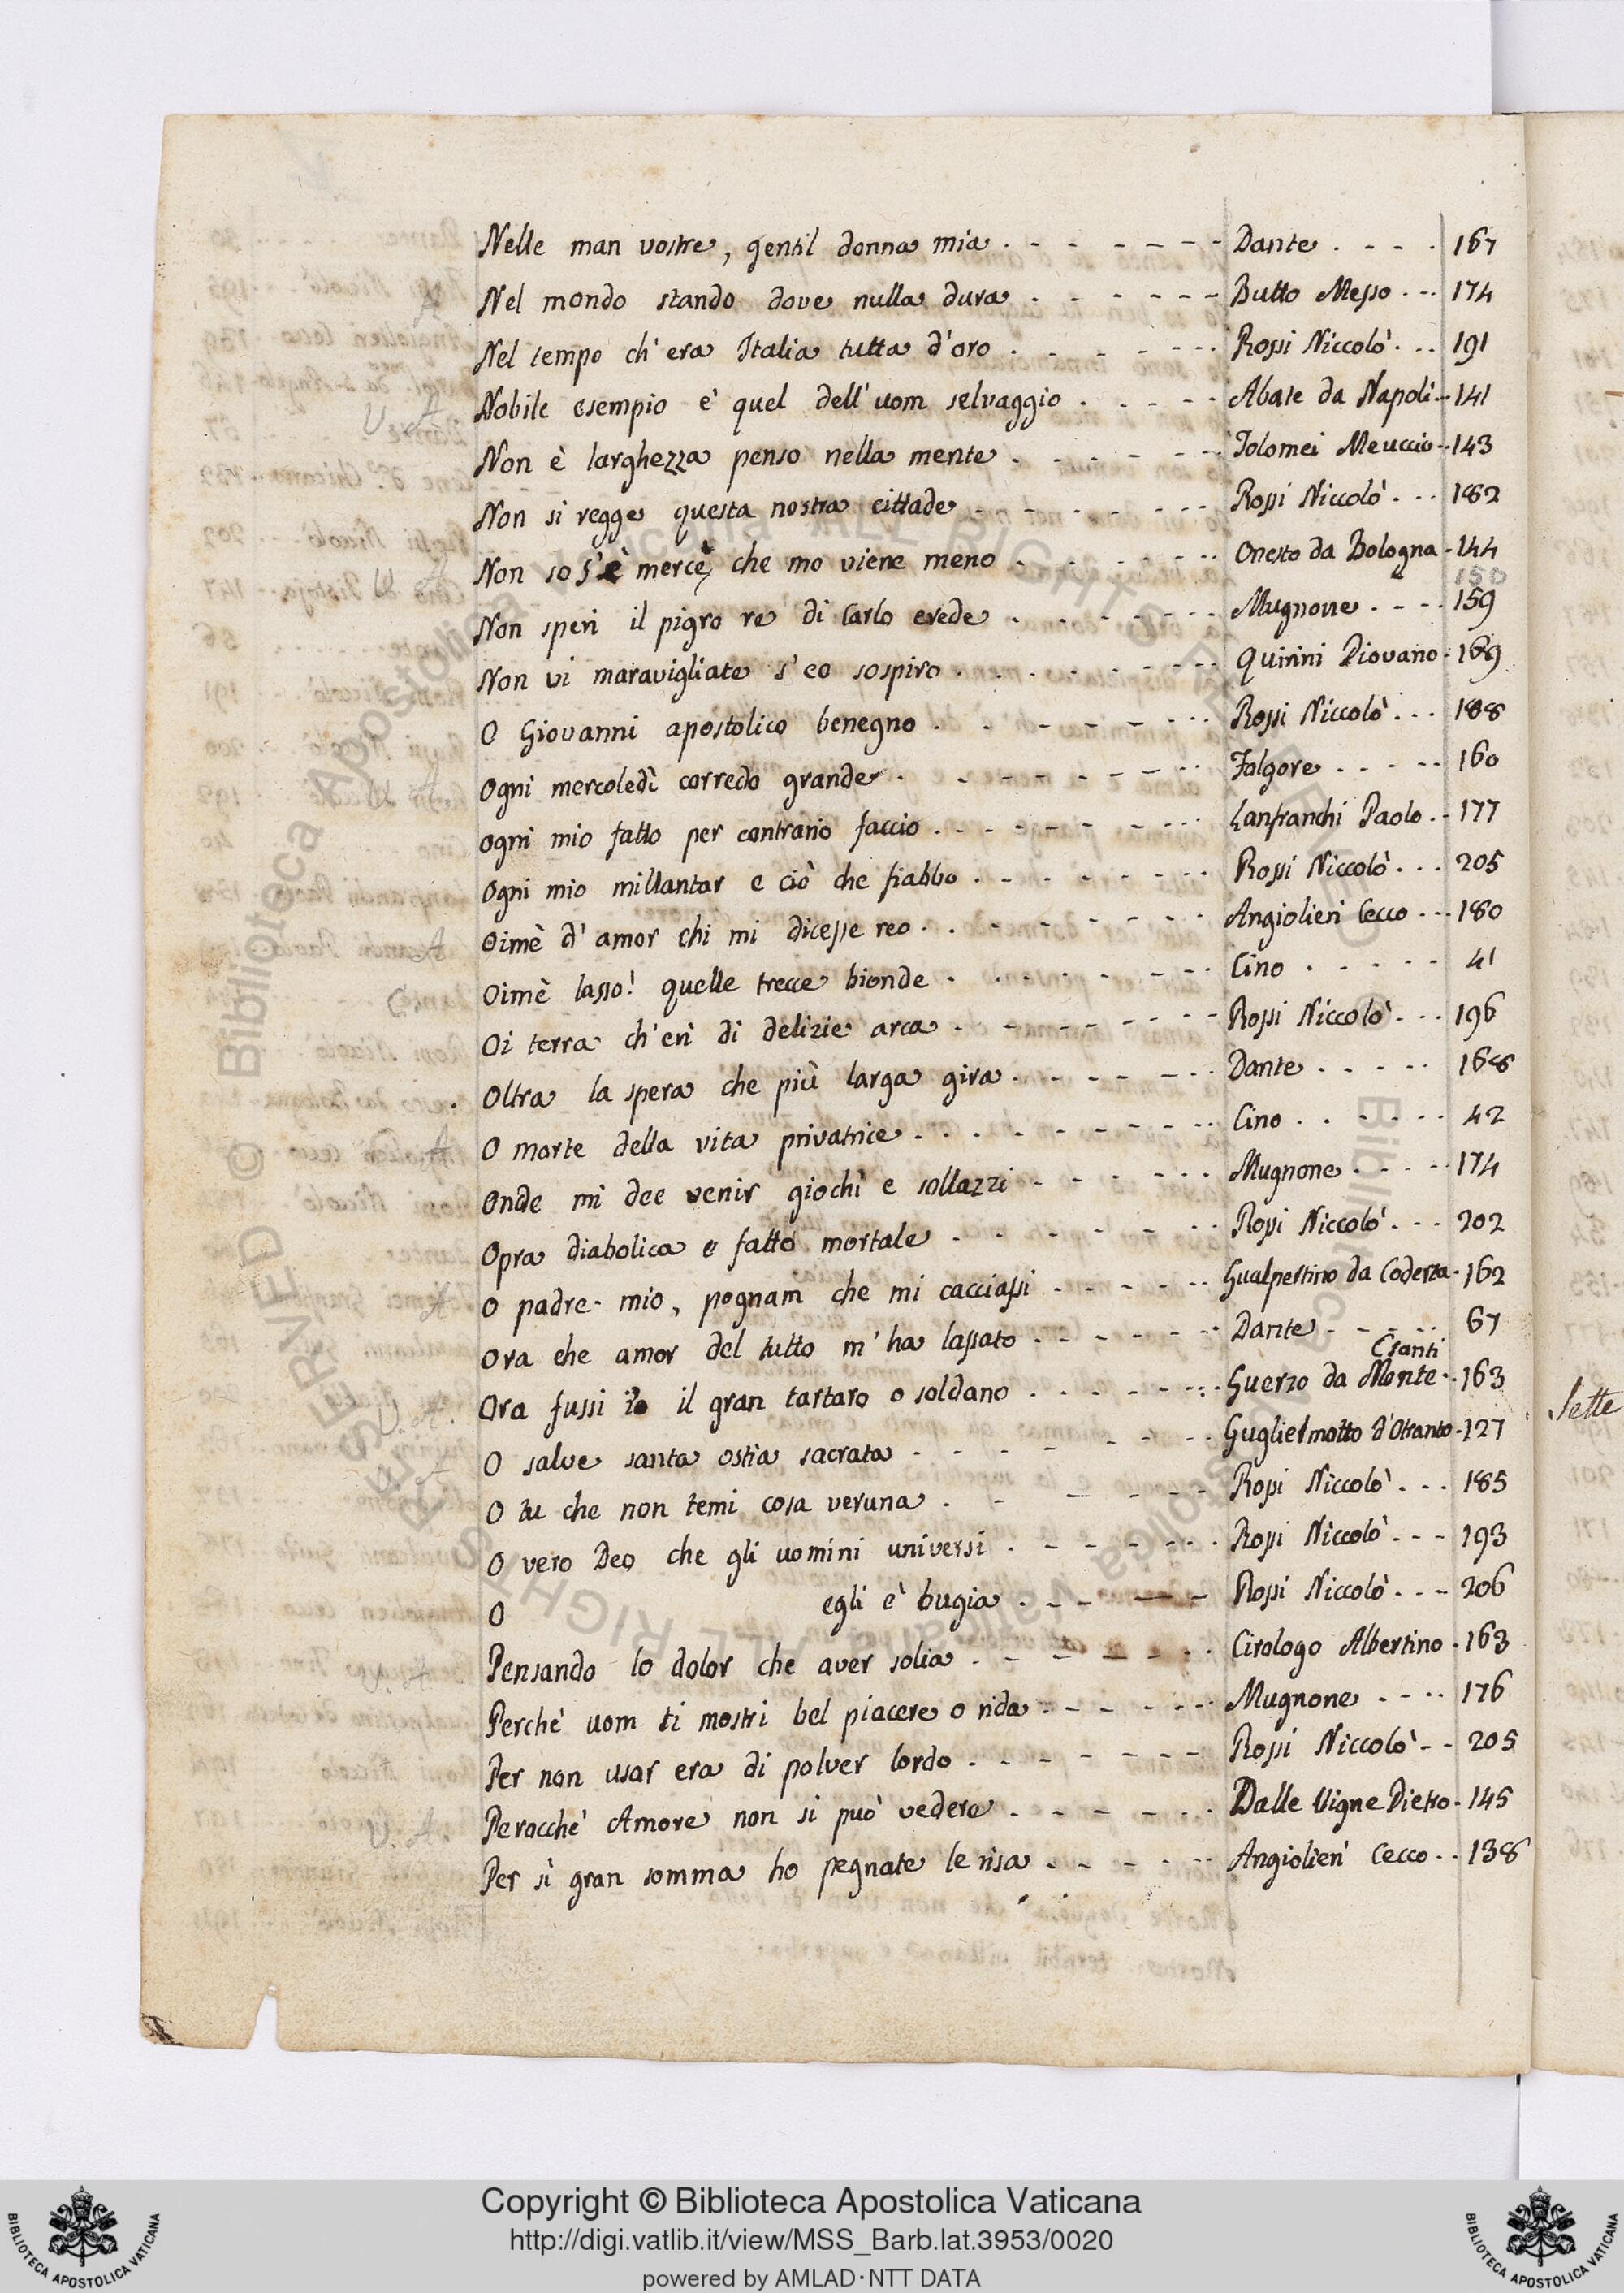 Nelle man vostre, gentil donna mia . - - - - - - Dante . - - . 167
A Nel mondo stando dove nulla dura . - - - - - - Butto Messo . - - 174
Nel tempo ch'era Italia tutta d'oro . - - - - - . Rossi Niccolò . - . 191
U. A Nobile esempio è quel dell'uom selvaggio . - - - - Abate da Napoli - - 141
Non è larghezza penso nella mente . - - - - - Tolomei Meuccio - - 143
Non si regge questa nostra cittade . - - - - - - Rossi Niccolò . - - 182
U A Non so s'è mercè, che mo viene meno . - - - - - Onesto da Bologna - 144
150
Non speri il pigro re di Carlo erede . - - - - - Mugnone . - - - 159
Non vi maravigliate s'eo sospiro . - - - - - - Quirini Piovano - 169
O Giovanni apostolico benegno . - - - - - . . Rossi Niccolò . . . 188
U A Ogni mercoledì corredo grande . - - - - - - . Folgore . - - - - 160
Ogni mio fatto per contrario faccio . - - - - - . . Lanfranchi Paolo . - 177
Ogni mio millantar e ciò che fiabbo . - - - - - . Rossi Niccolò . . . 205
A Oimè d'amor chi mi dicesse reo . . - - - - - . Angiolieri Cecco . - - 180
C. Oimè lasso! quelle trecce bionde . - - - - - - Cino . - - - - 41
Oi terra ch'eri di delizie arca . - - - - - - - Rossi Niccolò . - - 196
. Oltra la spera che più larga gira . - - - - - . Dante . . - - - 168
A O morte della vita privatrice . . . - - - - - . Cino . . - - - 42
Onde mi dee venir giochi e sollazzi . - - - - . . Mugnone . - - - 174
Opra diabolica e fatto mortale . - - - - - . Rossi Niccolò . - - 202
A O padre mio, pognam che mi cacciassi . - - - - . Gualpertino da Coderza - 162
Ora che amor del tutto m'ha lassato . - - - - - . Dante . - - - - 67
Csanti
U. A. Ora fussi io il gran tartaro o soldano . - - - - - . Guerzo da Monte - . 163
O salve santa ostia sacrata . - - - - - - . Guglielmotto d'Otranto - 127
A O tu che non temi cosa veruna . - - - - - Rossi Niccolò . - - 185
O vero Deo che gli uomini universi . - - - - - . Rossi Niccolò . - - 193
O egli è bugia . - - - - - Rossi Niccolò . - - 206
U. A Pensando lo dolor che aver solia . - - - - - . Cirologo Albertino - 163
Perchè uom ti mostri bel piacere o rida . - - - - - Mugnone . - - . 176
Per non usar era di polver lordo . - - - - - - Rossi Niccolò - - 205
U. A. Perocchè Amore non si può vedere . - - - - . . Dalle Vigne Pietro - 145
Per sì gran somma ho pegnate le risa . - - - - . . Angiolieri Cecco . . 138
Sette
Copyright © Biblioteca Apostolica Vaticana
http://digi.vatlib.it/view/MSS_Barb.lat.3953/0020
powered by AMLAD·NTT DATA
BIBLIOTECA APOSTOLICA VATICANA
BIBLIOTECA APOSTOLICA VATICANA